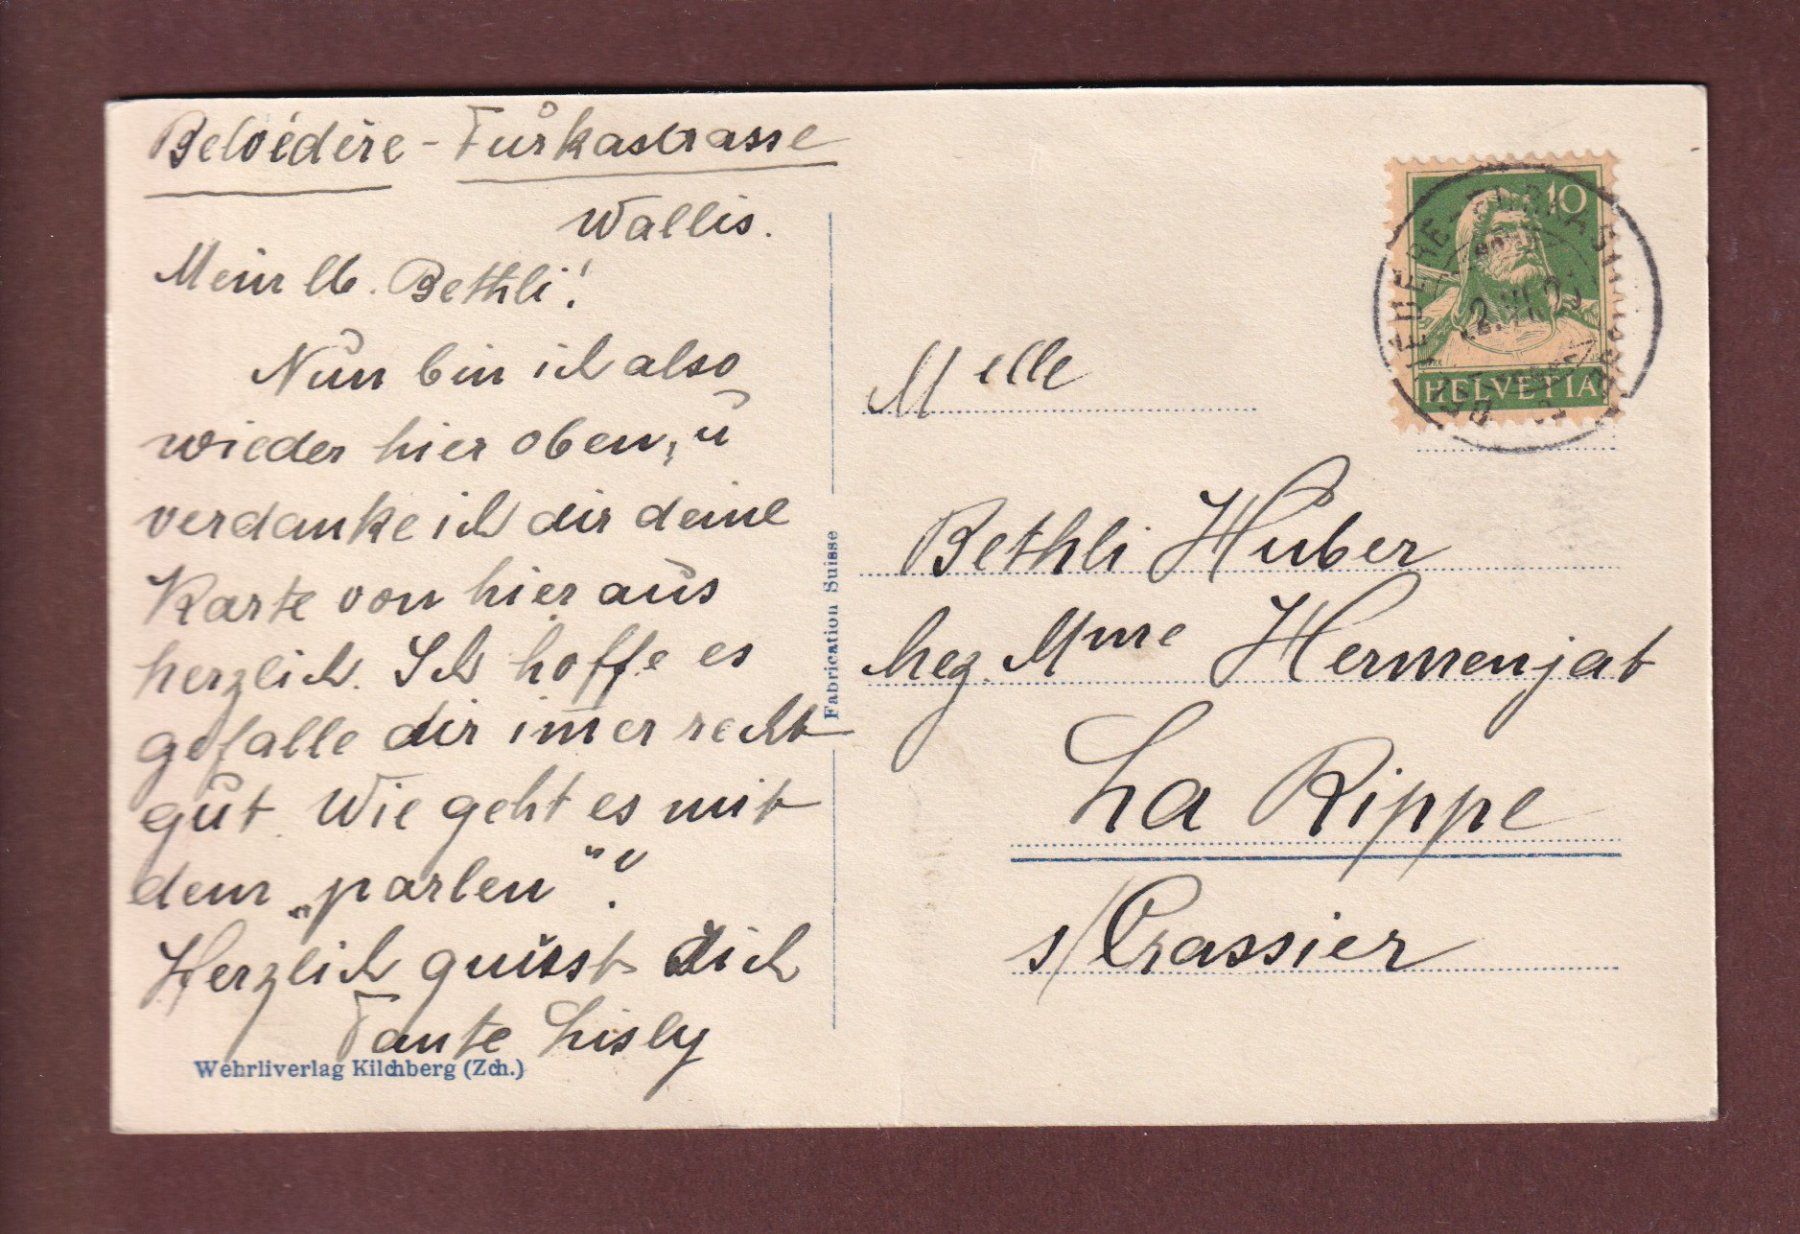 Belvédère - Furkastrasse
Wallis.
Mein lb. Bethli!
Nun bin ich also
wieder hier oben, u
verdanke ich dir deine
Karte von hier aus
herzlich. Ich hoffe es
gefalle dir im̄er recht
gut. Wie geht es mit
dem „parlen"?
Herzlich grüsst dich
Tante Lisly
Wehrliverlag Kilchberg (Zch.)
Fabrication Suisse
10
HELVETIA
Melle
Bethli Huber
chez. Mme Hermenjat
La Rippe
s/Crassier